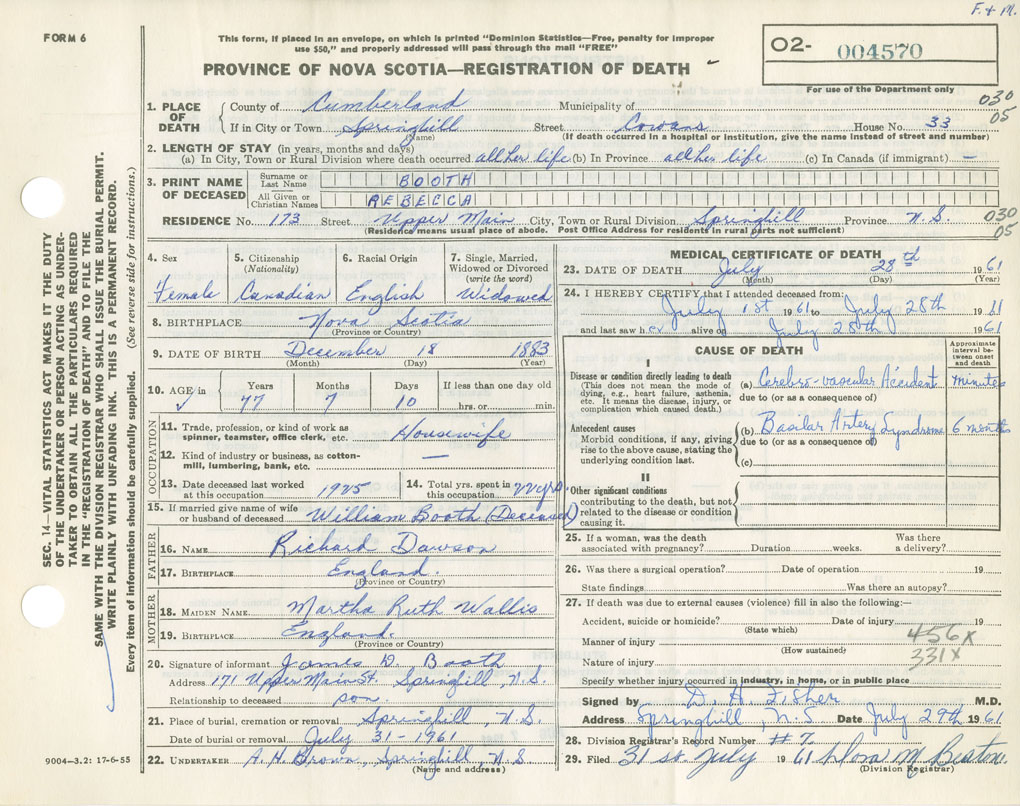 F. & M.
FORM 6
This form, if placed in an envelope, on which is printed "Dominion Statistics—Free, penalty for improper
use $50," and properly addressed will pass through the mail "FREE"
PROVINCE OF NOVA SCOTIA—REGISTRATION OF DEATH
O2- 004570
For use of the Department only
030
05
1. PLACE OF DEATH
County of Cumberland Municipality of
If in City or Town Springhill Street Cowans House No. 33
(Name) (If death occurred in a hospital or institution, give the name instead of street and number)
2. LENGTH OF STAY (in years, months and days)
(a) In City, Town or Rural Division where death occurred all her life (b) In Province all her life (c) In Canada (if immigrant) —
3. PRINT NAME OF DECEASED
Surname or Last Name BOOTH
All Given or Christian Names REBECCA
RESIDENCE No. 173 Street Upper Main City, Town or Rural Division Springhill Province N.S.
(Residence means usual place of abode. Post Office Address for residents in rural parts not sufficient)
030
05
4. Sex
Female
5. Citizenship
(Nationality)
Canadian
6. Racial Origin
English
7. Single, Married,
Widowed or Divorced
(write the word)
Widowed
8. BIRTHPLACE Nova Scotia
(Province or Country)
9. DATE OF BIRTH December 18 1883
(Month) (Day) (Year)
10. AGE in Years Months Days If less than one day old
77 7 10 hrs. or min.
OCCUPATION
11. Trade, profession, or kind of work as
spinner, teamster, office clerk, etc. Housewife
12. Kind of industry or business, as cotton-
mill, lumbering, bank, etc. —
13. Date deceased last worked
at this occupation 1925
14. Total yrs. spent in
this occupation 22 yrs
15. If married give name of wife
or husband of deceased William Booth (Deceased)
FATHER
16. NAME Richard Dawson
17. BIRTHPLACE England.
(Province or Country)
MOTHER
18. MAIDEN NAME Martha Ruth Wallis
19. BIRTHPLACE England.
(Province or Country)
20. Signature of informant James D. Booth
Address 171 Upper Main St. Springhill, N.S.
Relationship to deceased son
21. Place of burial, cremation or removal Springhill, N.S.
Date of burial or removal July 31-1961
22. UNDERTAKER A. H. Brown, Springhill, N.S.
(Name and address)
MEDICAL CERTIFICATE OF DEATH
23. DATE OF DEATH July 28th 1961
(Month) (Day) (Year)
24. I HEREBY CERTIFY that I attended deceased from:
July 1st 1961 to July 28th 1961
and last saw her alive on July 28th 1961
CAUSE OF DEATH
Approximate
interval be-
tween onset
and death
I
Disease or condition directly leading to death
(This does not mean the mode of
dying, e.g., heart failure, asthenia,
etc. It means the disease, injury, or
complication which caused death.)
(a) Cerebro-vascular Accident minutes
due to (or as a consequence of)
Antecedent causes
Morbid conditions, if any, giving
rise to the above cause, stating the
underlying condition last.
(b) Basilar Artery Syndrome 6 months
due to (or as a consequence of)
(c)
II
Other significant conditions
contributing to the death, but not
related to the disease or condition
causing it.
25. If a woman, was the death
associated with pregnancy? Duration weeks. Was there
a delivery?
26. Was there a surgical operation? Date of operation 19
State findings Was there an autopsy?
27. If death was due to external causes (violence) fill in also the following:—
Accident, suicide or homicide? Date of injury 19
(State which)
Manner of injury
(How sustained)
Nature of injury
456X
331X
Specify whether injury occurred in industry, in home, or in public place
Signed by D. H. Fisher M.D.
Address Springhill, N.S Date July 29th 1961
28. Division Registrar's Record Number #7
29. Filed 31 st July 1961 Dora M Beaton
(Division Registrar)
SEC. 14—VITAL STATISTICS ACT MAKES IT THE DUTY
OF THE UNDERTAKER OR PERSON ACTING AS UNDER-
TAKER TO OBTAIN ALL THE PARTICULARS REQUIRED
IN THE "REGISTRATION OF DEATH" AND TO FILE THE
SAME WITH THE DIVISION REGISTRAR WHO SHALL ISSUE THE BURIAL PERMIT.
WRITE PLAINLY WITH UNFADING INK. THIS IS A PERMANENT RECORD.
Every item of information should be carefully supplied. (See reverse side for instructions.)
9004—3.2: 17-6-55